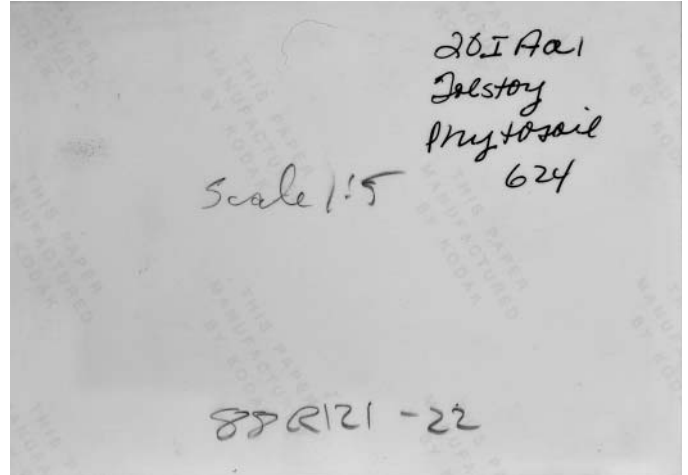 20IAa1
Tolstoy
Phytosoil
624
Scale 1:5
88R121-22
THIS PAPER
MANUFACTURED
BY KODAK